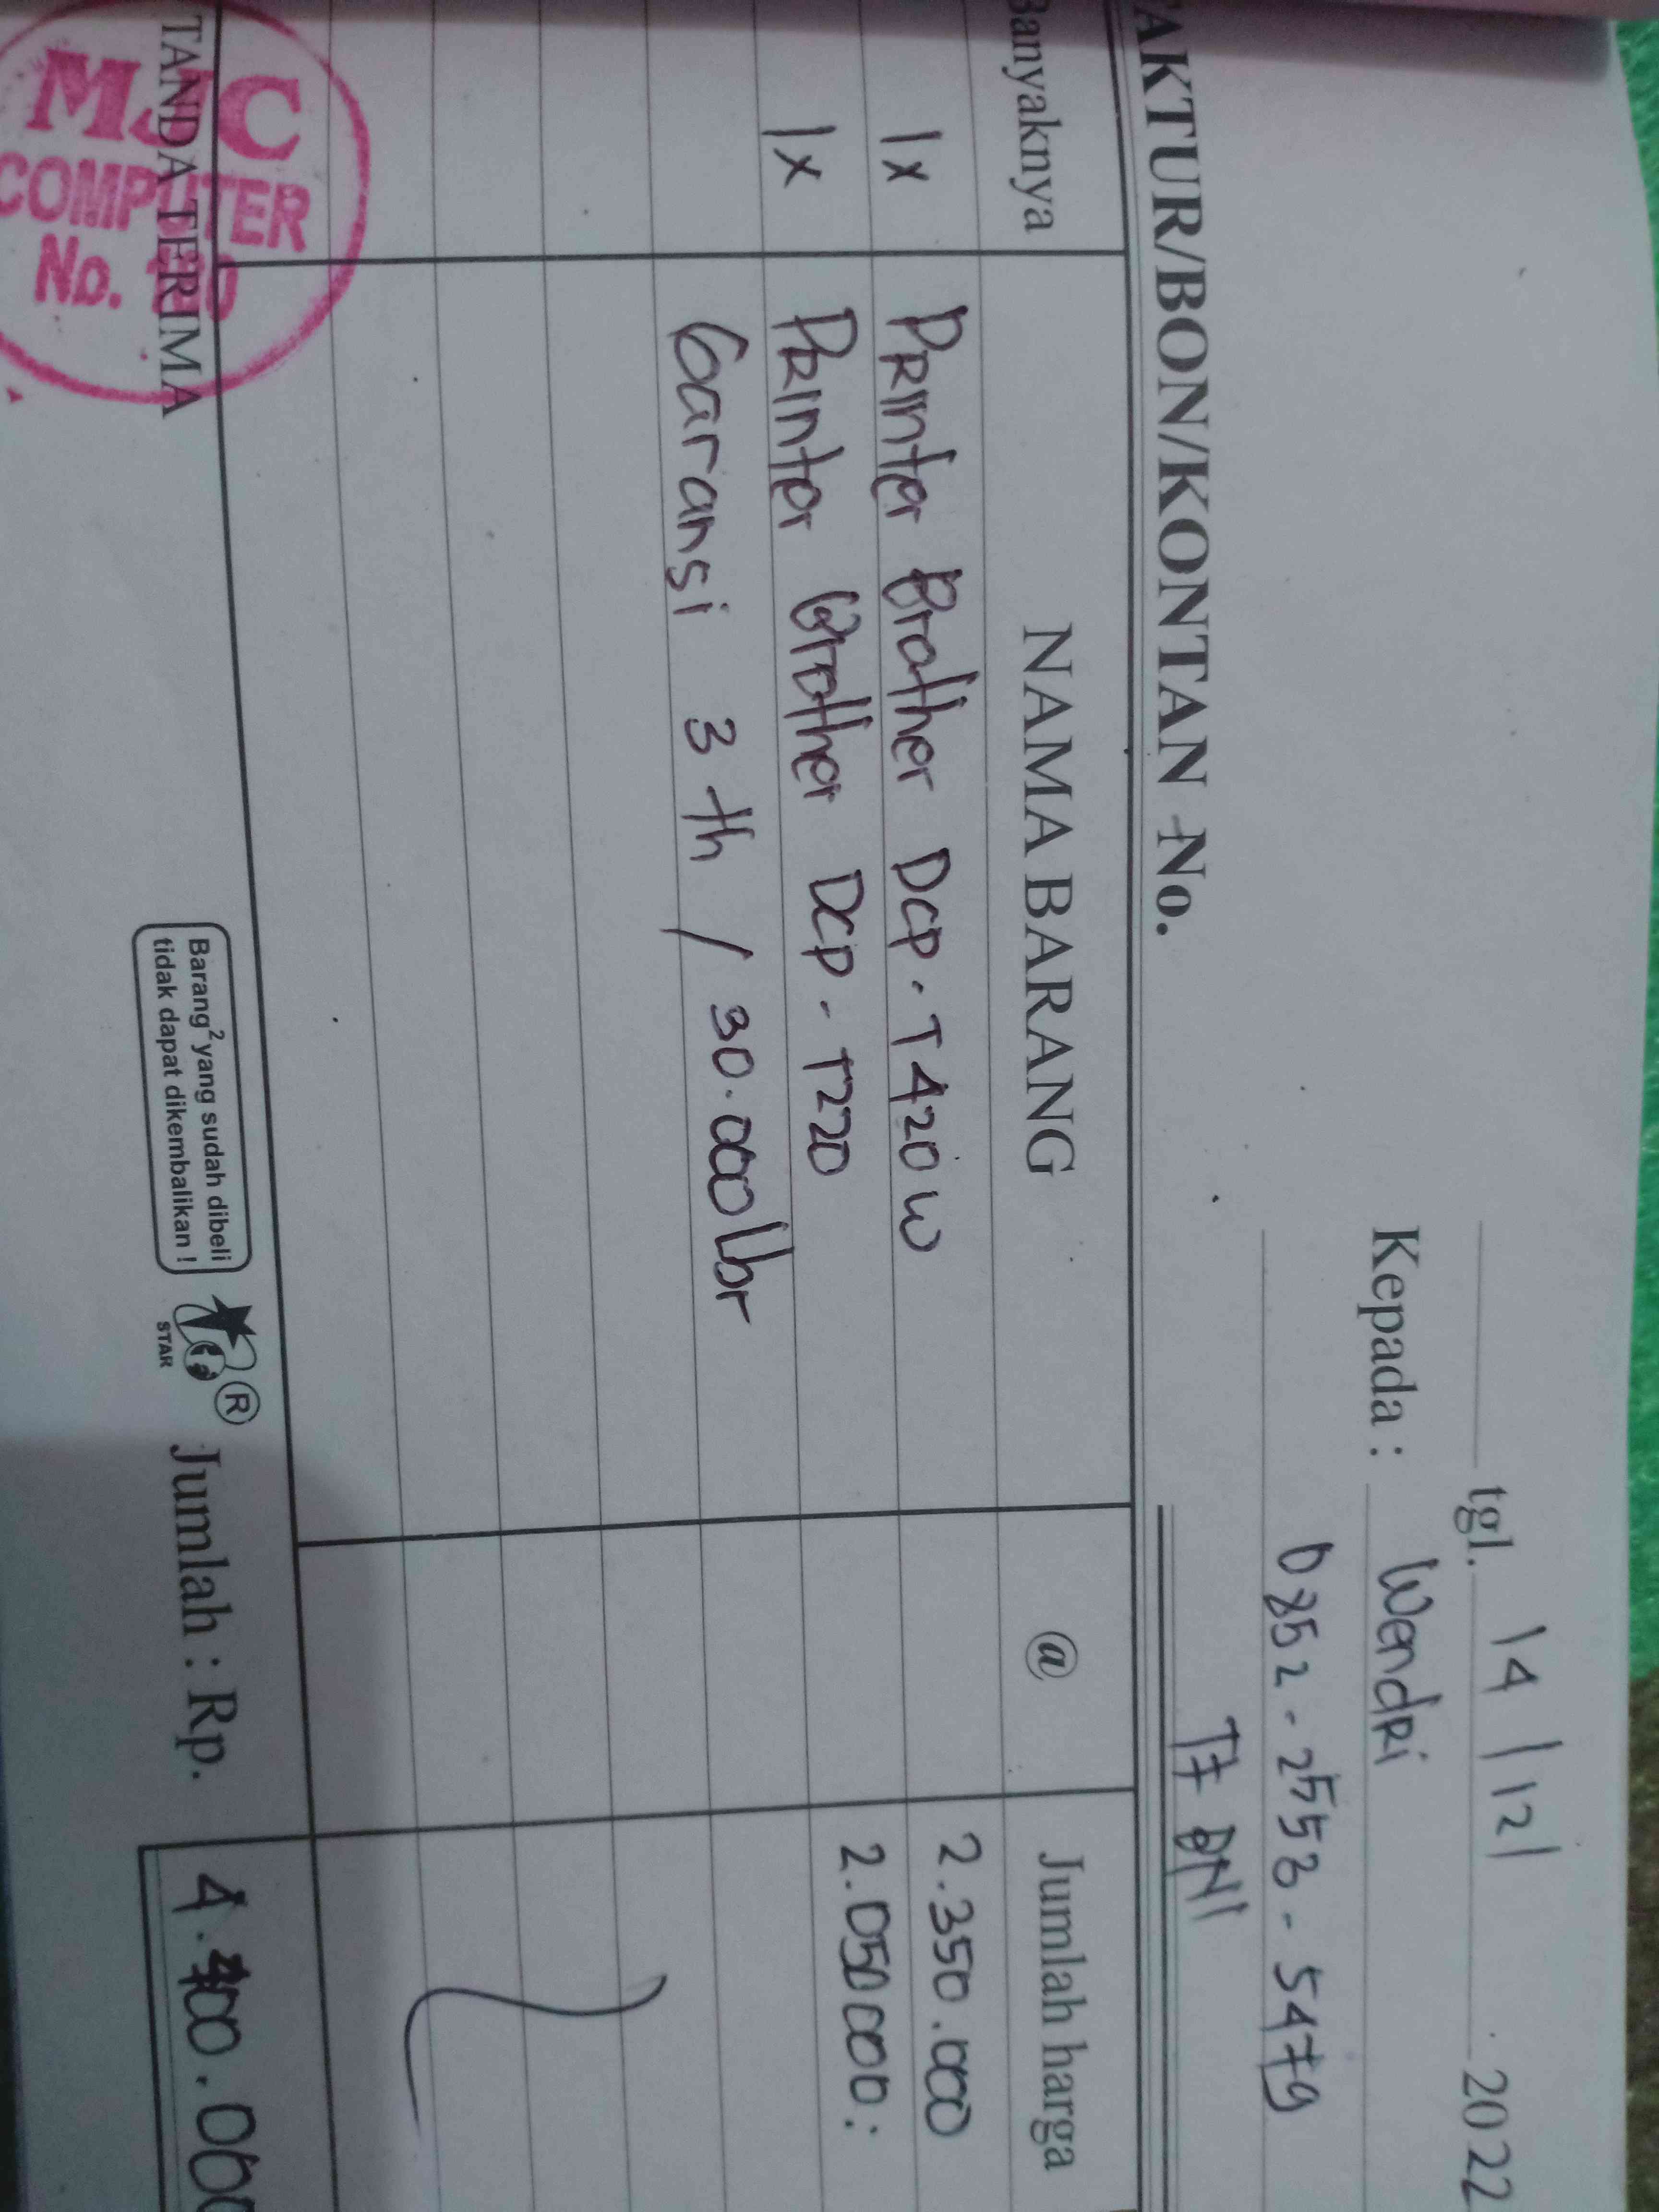 tgl. 14/12/ 2022
Kepada : Wendri
0852-2553-5479
TF BNI
AKTUR/BON/KONTAN No.
Banyaknya NAMA BARANG @ Jumlah harga
1x Printer Brother DCP-T420W 2.350.000
1x Printer Brother DCP-T220 2.050000:
Garansi 3 th / 30.000 lbr
TANDA TERIMA
MJC
COMPUTER
No.
Barang² yang sudah dibeli
tidak dapat dikembalikan !
STAR ®
Jumlah : Rp. 4.400.000